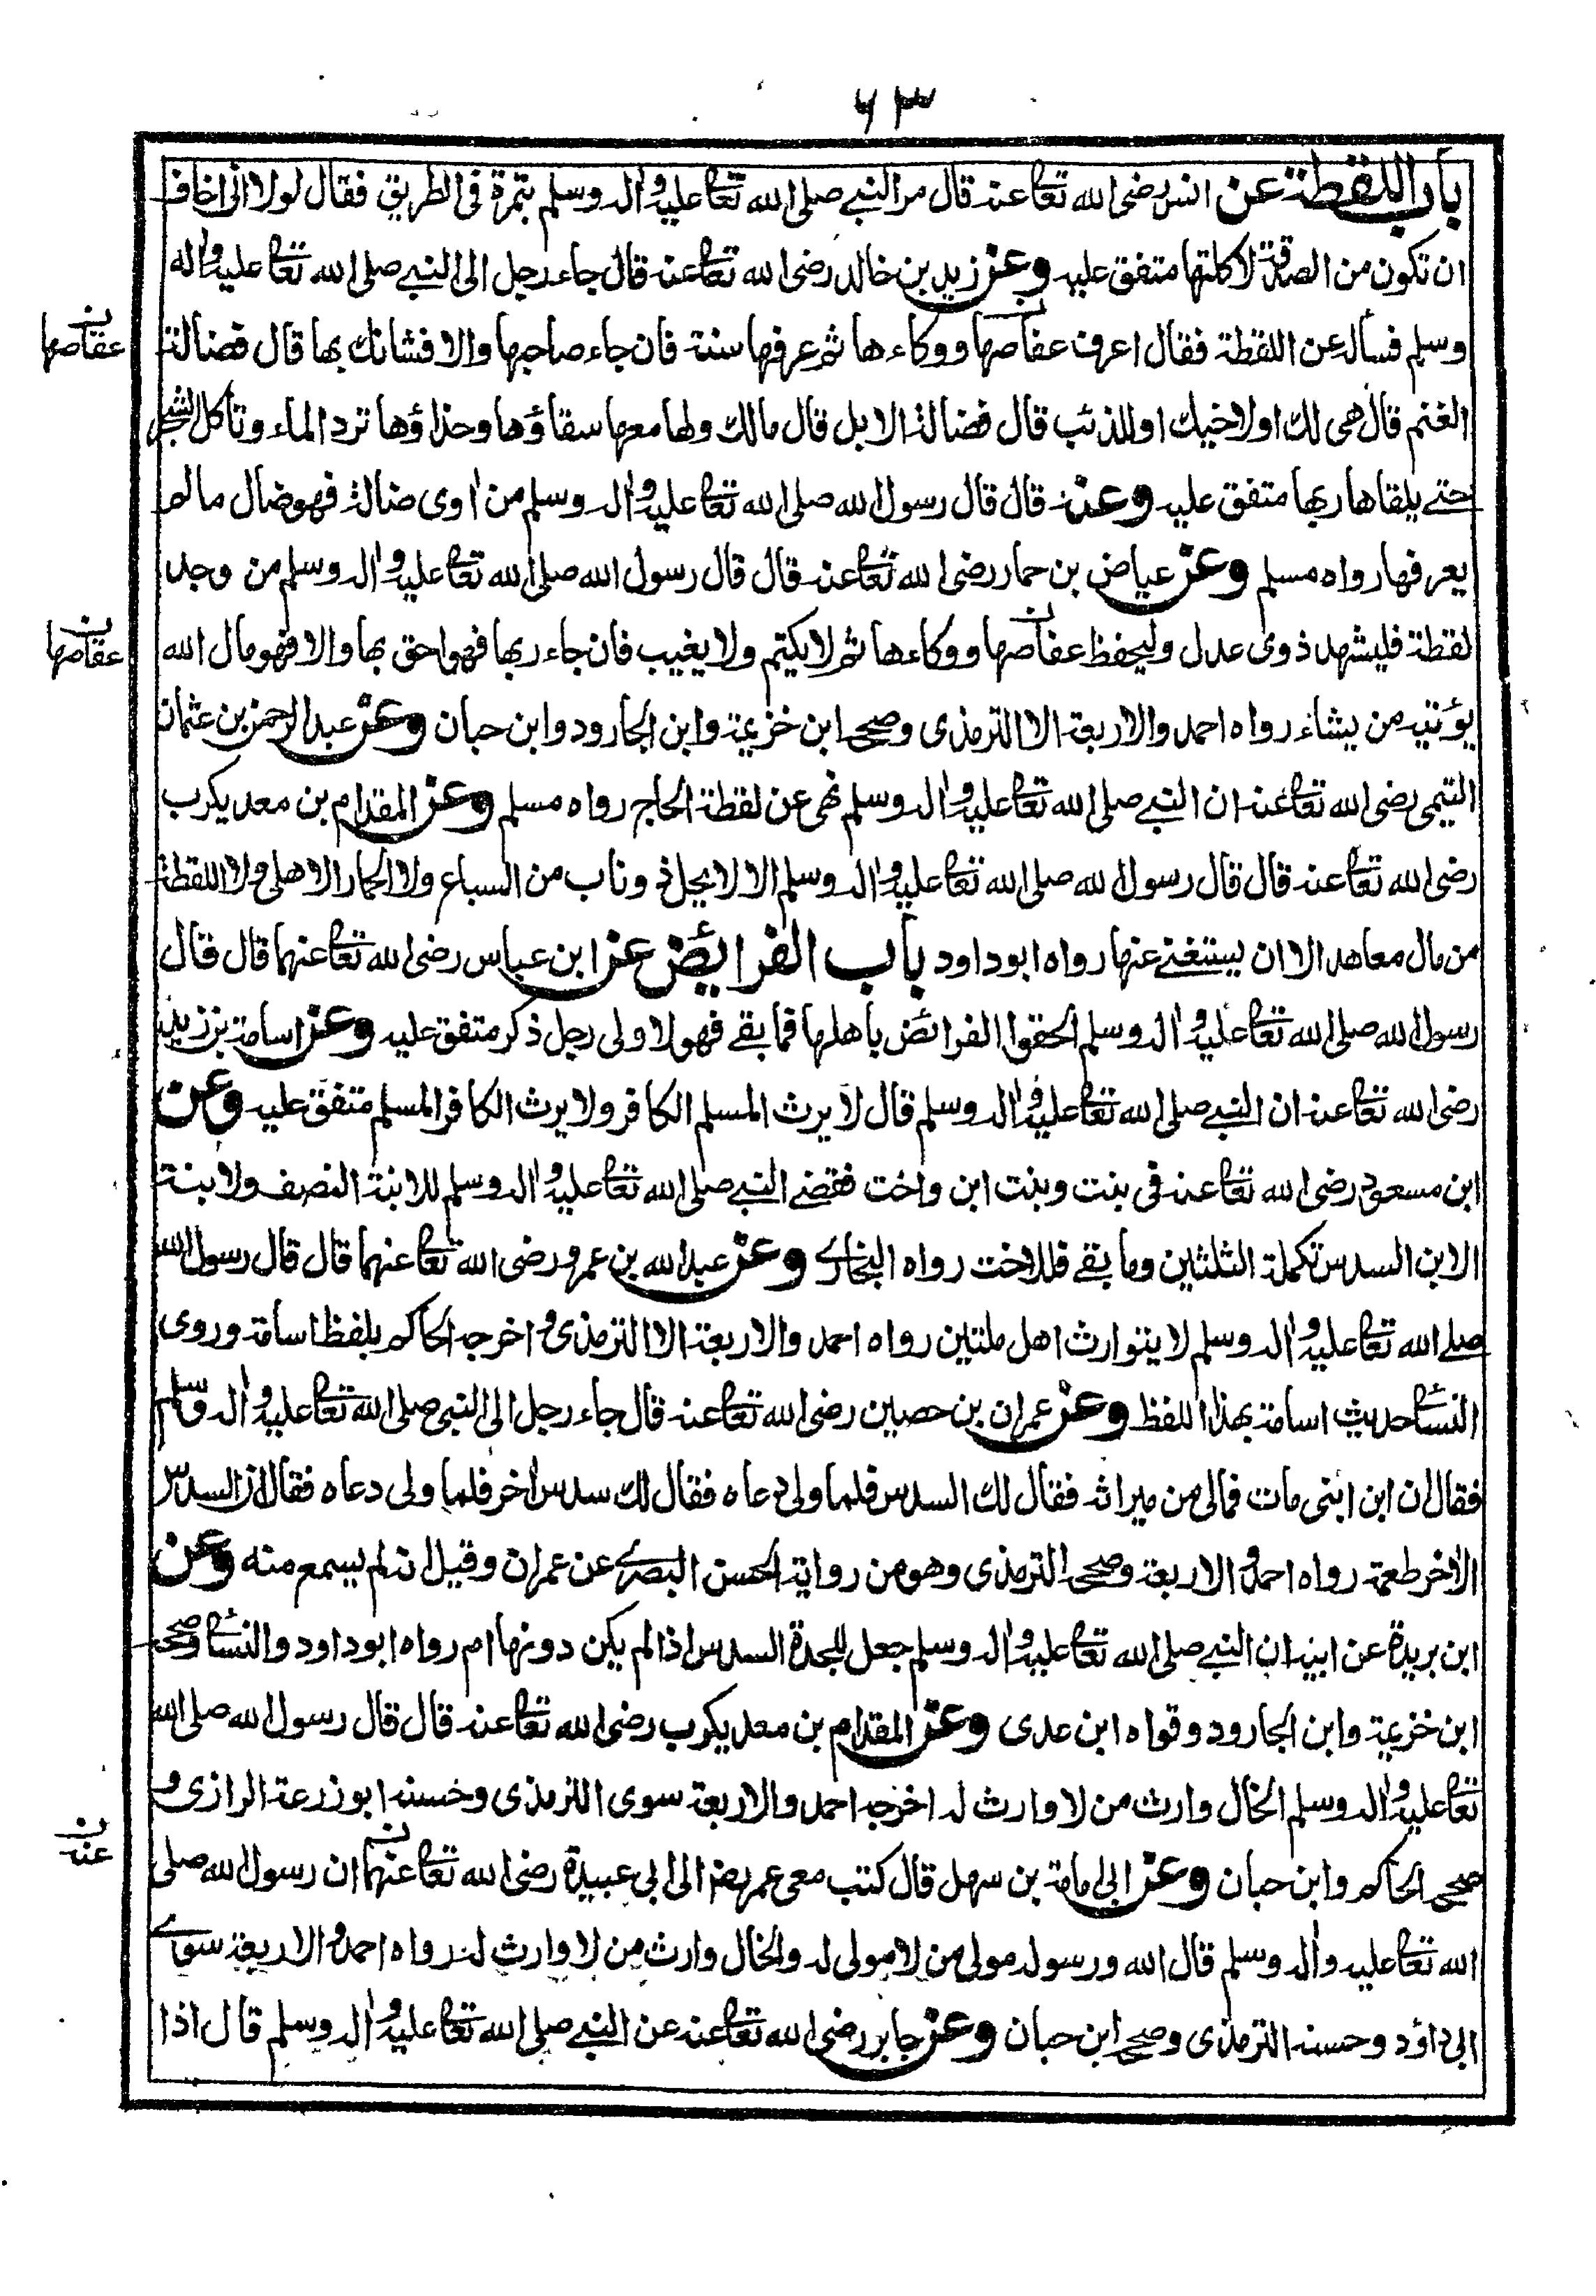 ٦٣
باب اللقطة عن انس رضى الله تعا عنه قال مر النبى صلى الله تعا عليه واله وسلم بتمرة فى الطريق فقال لولا انى اخاف
ان تكون من الصدقة لاكلتها متفق عليه وعن زيد بن خالد رضى الله تعا عنه قال جاء رجل الى النبى صلى الله تعا عليه واله
وسلم فسأله عن اللقطة فقال اعرف عفاصها ووكاءها ثم عرفها سنة فان جاء صاحبها والا فشانك بها قال فضالة
عقاصها ن
الغنم قال هى لك اولاخيك اوللذئب قال فضالة الابل قال مالك ولها معها سقاؤها وحذاؤها ترد الماء وتاكل الشجر
حتى يلقاها ربها متفق عليه وعنه قال قال رسول الله صلى الله تعا عليه واله وسلم من اوى ضالة فهو ضال ما لم
يعرفها رواه مسلم وعن عياض بن حمار رضى الله تعا عنه قال قال رسول الله صلى الله تعا عليه واله وسلم من وجد
لقطة فليشهد ذوى عدل وليحفظ عفاصها ووكاءها ثم لا يكتم ولا يغيب فان جاء ربها فهو احق بها والا فهو مال الله
عقاصها ن
يؤتيه من يشاء رواه احمد والاربعة الا الترمذى وصححه ابن خزيمة وابن الجارود وابن حبان وعن عبد الرحمن بن عثمان
التيمى رضى الله تعا عنه ان النبى صلى الله تعا عليه واله وسلم نهى عن لقطة الحاج رواه مسلم وعن المقدام بن معديكرب
رضى الله تعا عنه قال قال رسول الله صلى الله تعا عليه واله وسلم الا لا يحل ذو ناب من السباع ولا الحمار الاهلى ولا اللقطة
من مال معاهد الا ان يستغنى عنها رواه ابوداود باب الفرائض عن ابن عباس رضى الله تعا عنهما قال قال
رسول الله صلى الله تعا عليه واله وسلم الحقوا الفرائض باهلها فما بقى فهو لاولى رجل ذكر متفق عليه وعن اسامة بن زيد
رضى الله تعا عنه ان النبى صلى الله تعا عليه واله وسلم قال لا يرث المسلم الكافر ولا يرث الكافر المسلم متفق عليه وعن
ابن مسعود رضى الله تعا عنه فى بنت وبنت ابن واخت فقضى النبى صلى الله تعا عليه واله وسلم للابنة النصف ولابنة
الابن السدس تكملة الثلثين وما بقى فللاخت رواه البخارى وعن عبد الله بن عمرو رضى الله تعا عنهما قال قال رسول الله
صلى الله تعا عليه واله وسلم لا يتوارث اهل ملتين رواه احمد والاربعة الا الترمذى واخرجه الحاكم بلفظ اسامة وروى
النسائى حديث اسامة بهذا اللفظ وعن عمران بن حصين رضى الله تعا عنه قال جاء رجل الى النبى صلى الله تعا عليه واله وسلم
فقال ان ابن ابنى مات فمالى من ميراثه فقال لك السدس فلما ولى دعاه فقال لك سدس اخر فلما ولى دعاه فقال ان السدس
الاخر طعمة رواه احمد والاربعة وصححه الترمذى وهو من رواية الحسن البصرى عن عمران وقيل انه لم يسمع منه وعن
ابن بريدة عن ابيه ان النبى صلى الله تعا عليه واله وسلم جعل للجدة السدس اذا لم يكن دونها ام رواه ابوداود والنسائى وصححه
ابن خزيمة وابن الجارود وقواه ابن عدى وعن المقدام بن معديكرب رضى الله تعا عنه قال قال رسول الله صلى الله
تعا عليه واله وسلم الخال وارث من لا وارث له اخرجه احمد والاربعة سوى الترمذى وحسنه ابوزرعة الرازى و
صححه الحاكم وابن حبان وعن ابى امامة بن سهل قال كتب معى عمر رضـ الى ابى عبيدة رضى الله تعا عنهما ان رسول الله صلى
عنه ن
الله تعا عليه واله وسلم قال الله ورسوله مولى من لا مولى له والخال وارث من لا وارث له رواه احمد والاربعة سوى
ابى داؤد وحسنه الترمذى وصححه ابن حبان وعن جابر رضى الله تعا عنه عن النبى صلى الله تعا عليه واله وسلم قال اذا